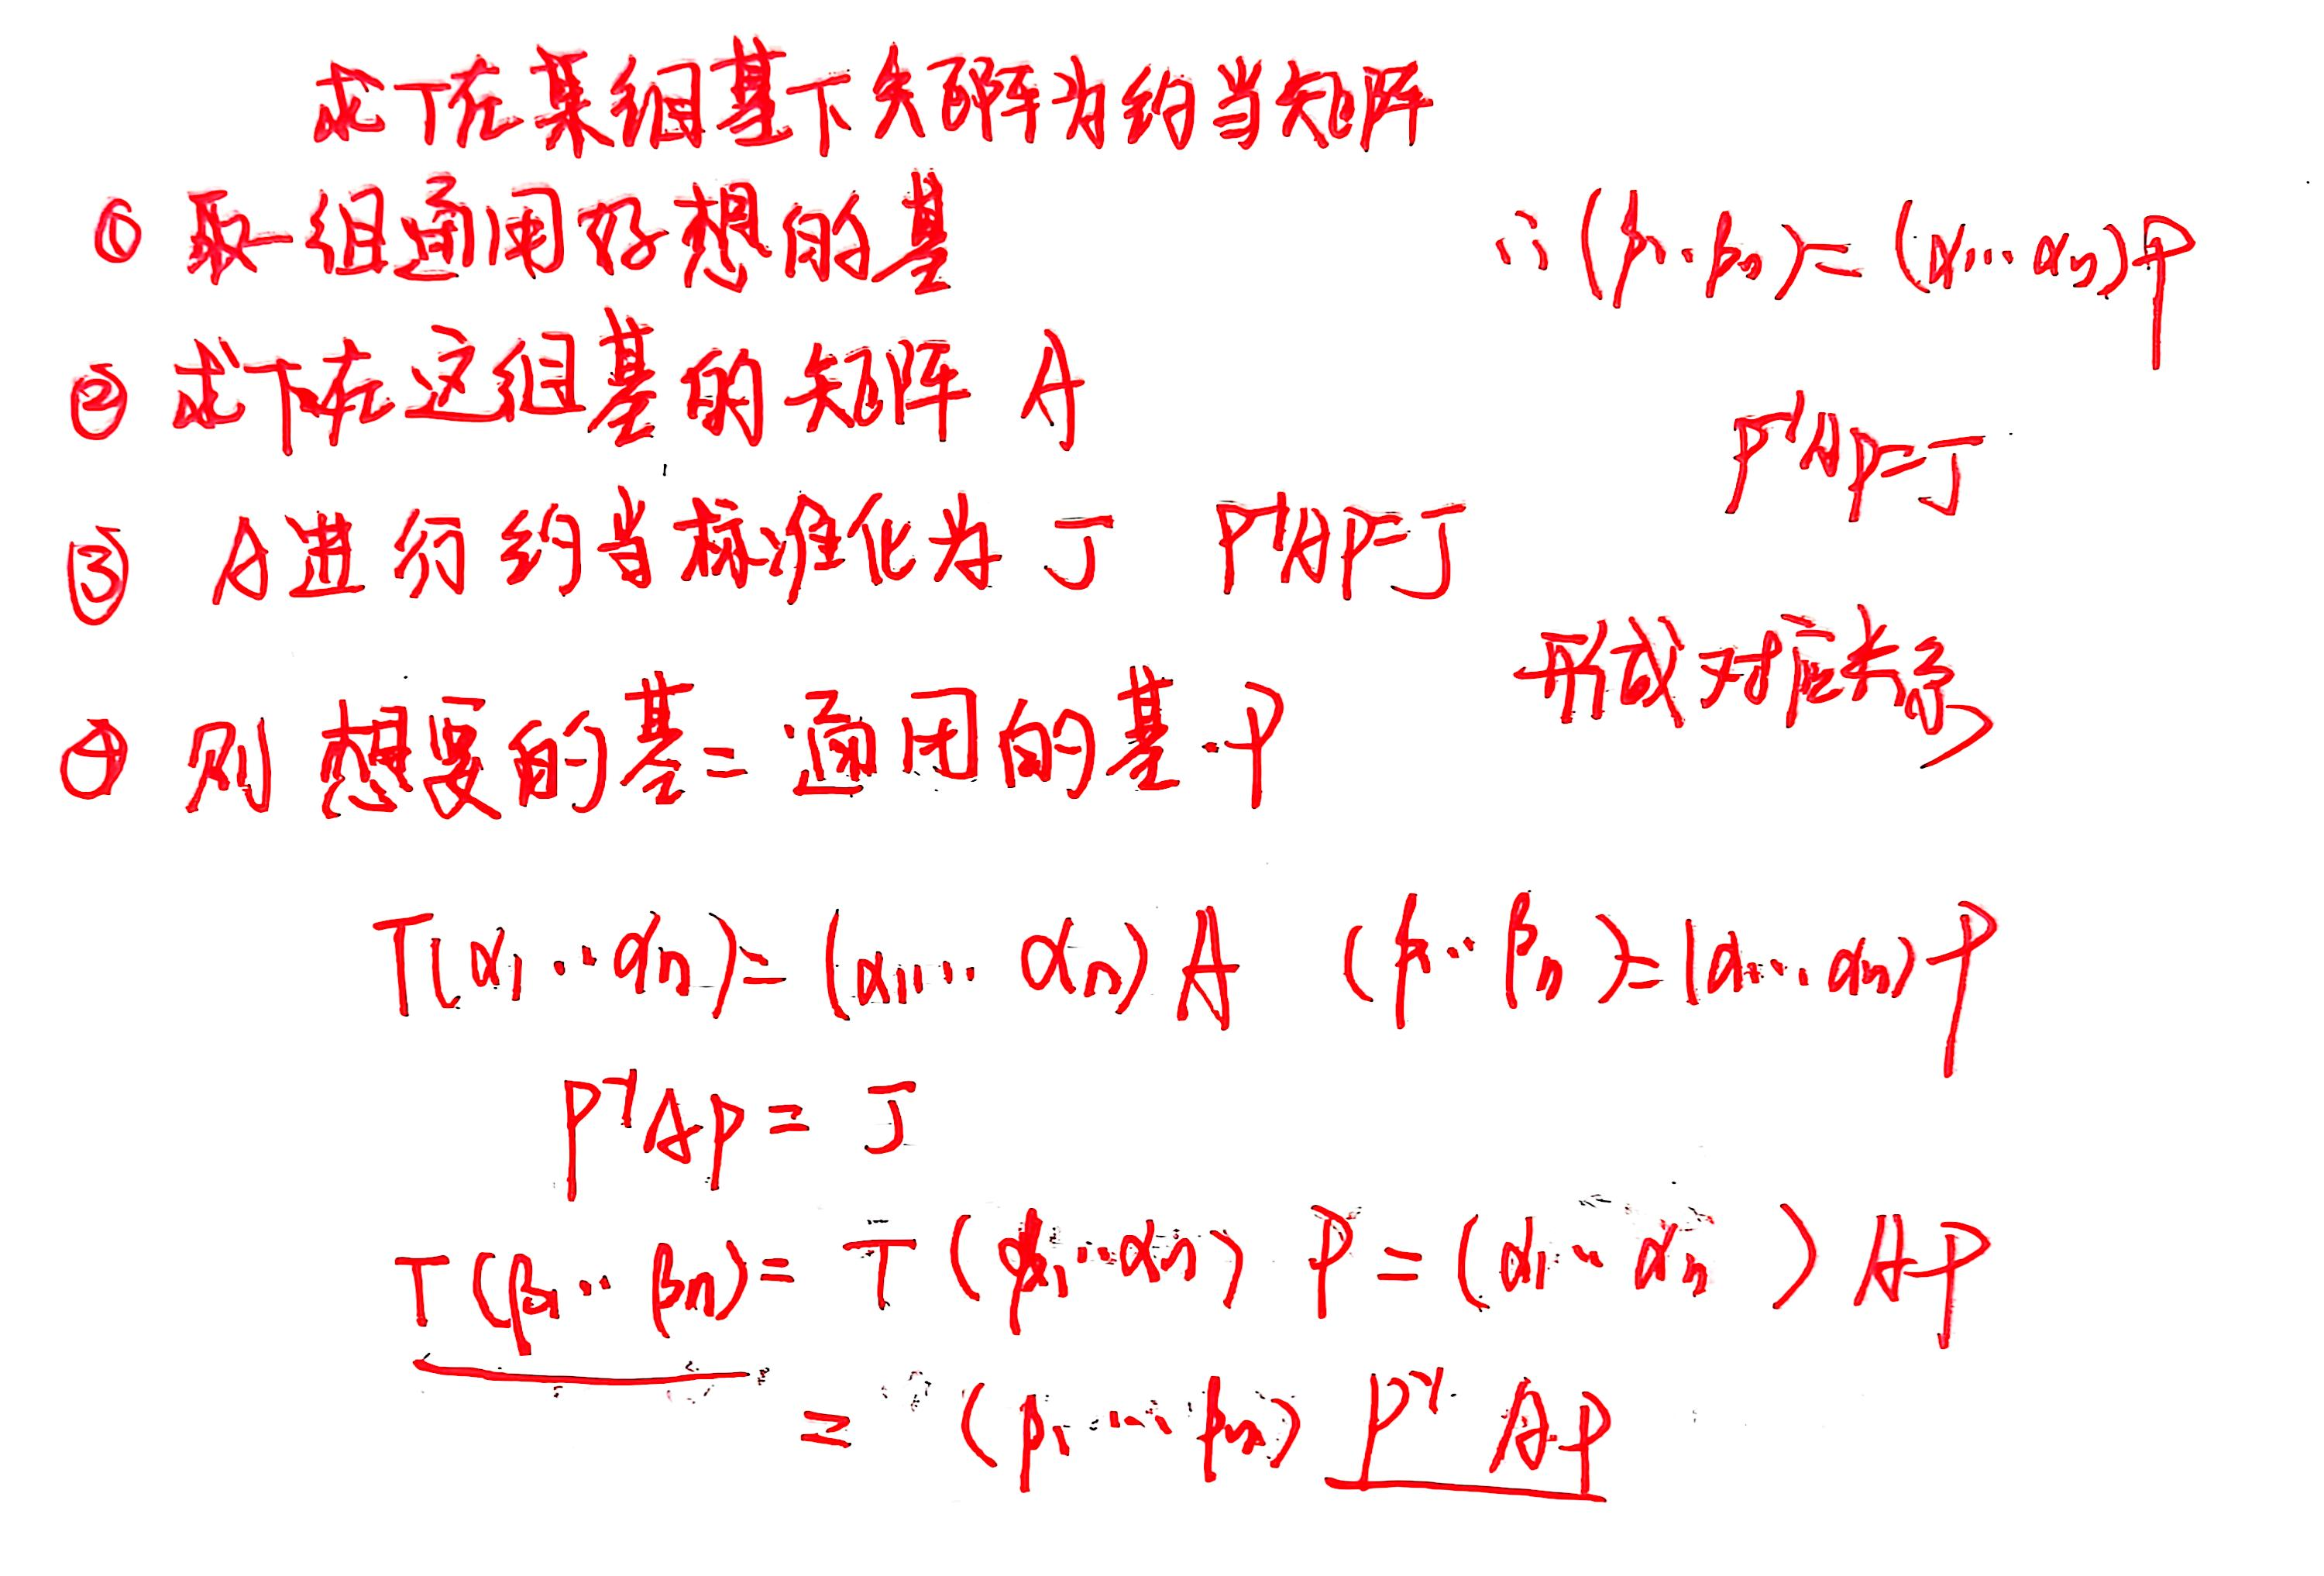 求T在某组基下矩阵为约当矩阵
① 取一组通用好想的基
② 求T在这组基的矩阵 A
③ A进行约当标准化为 J P⁻¹AP=J
④ 则 想要的基= 通用的基·P
∴(β₁‥βₙ)=(α₁…αₙ)P
P⁻¹AP=J
形成对应关系
T(α₁‥αₙ)=(α₁…αₙ)A (β₁‥βₙ)=(α₁…αₙ)P
P⁻¹AP= J
T(β₁‥βₙ)= T(α₁‥αₙ) P=(α₁‥αₙ) AP
= (β₁…βₙ) P⁻¹ AP